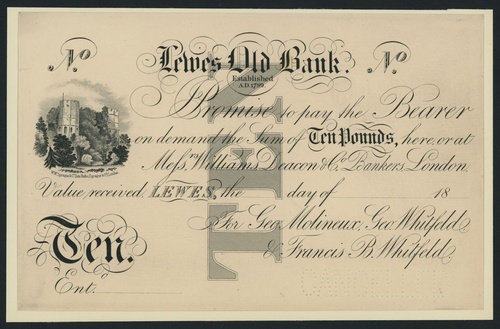 No Lewes Old Bank. No
Established
A.D. 1789.
Promise to pay the Bearer
on demand the Sum of Ten Pounds, here or at
Messrs Williams Deacon & Co. Bankers, London.
Value received, LEWES, the day of 18
For Geo. Molineux, Geo. Whitfeld
Ten. & Francis B. Whitfeld.
Ent.
TEN